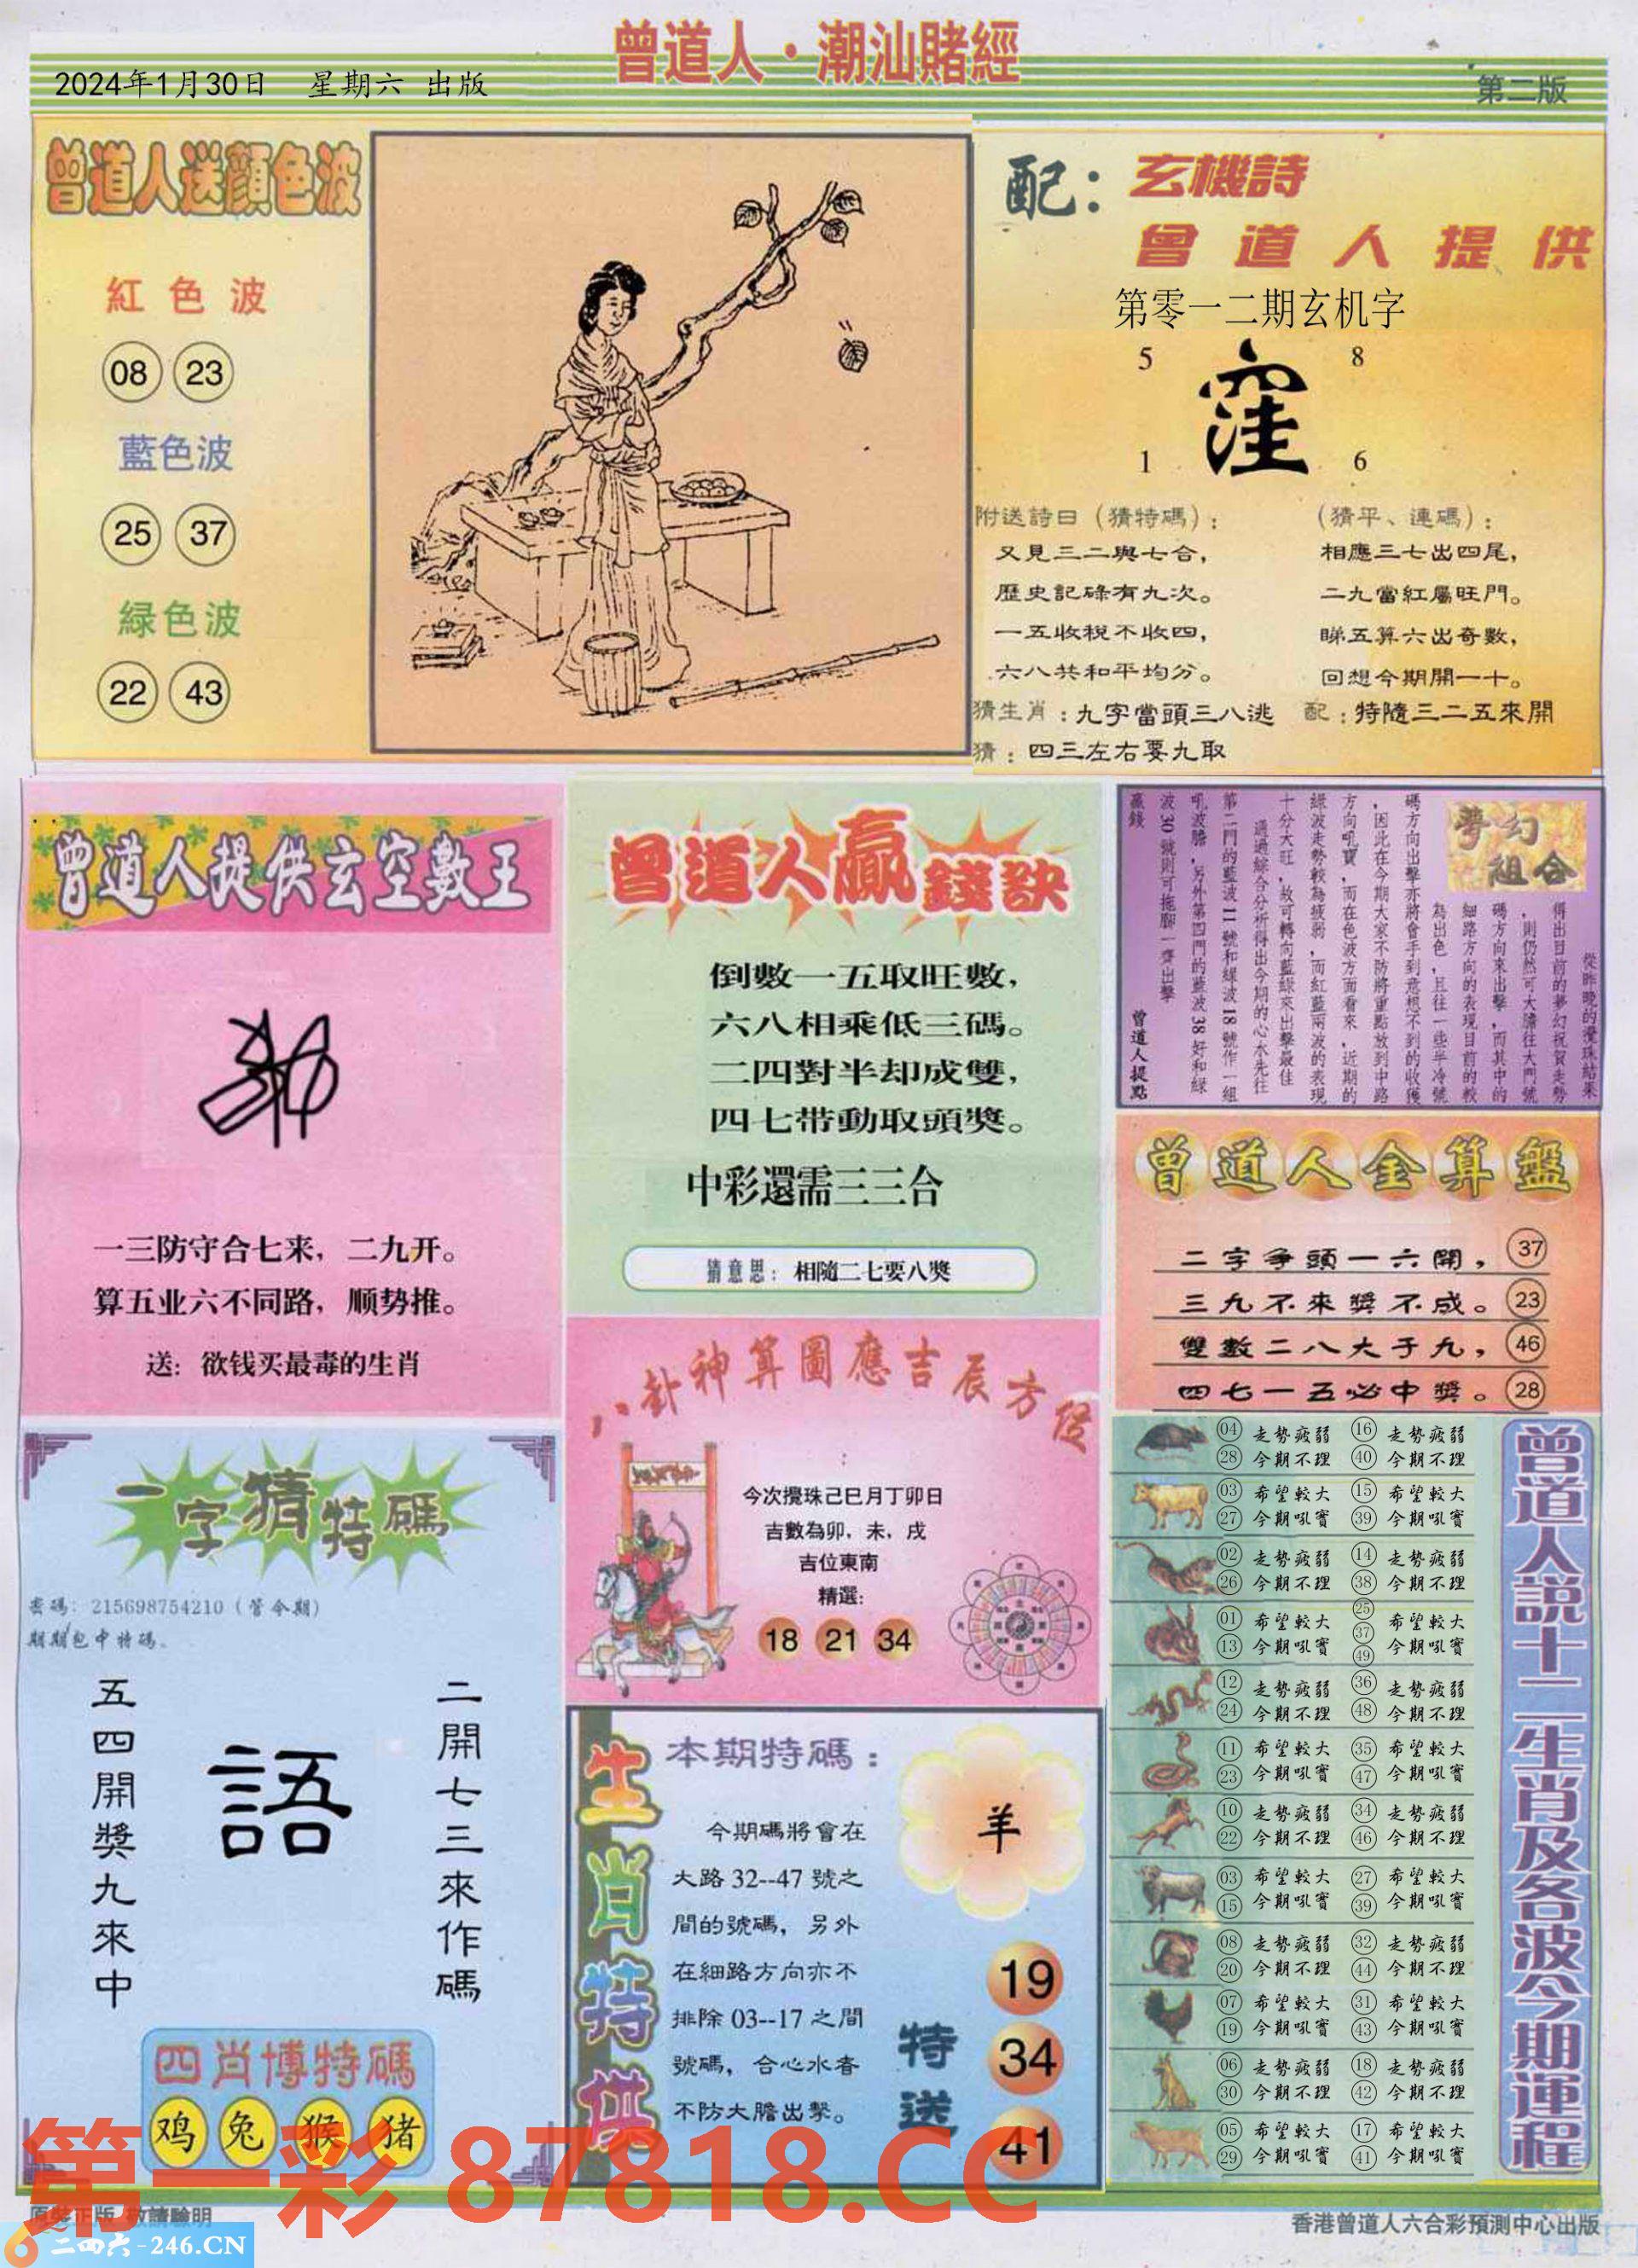 曾道人·潮汕賭經
2024年1月30日 星期六 出版
第二版
曾道人送顏色波
紅色波
08 23
藍色波
25 37
緑色波
22 43
配：玄機詩
曾道人提供
第零一二期玄机字
5 8
窪
1 6
附送詩曰（猜特碼）：
又見三二與七合，
歷史記碌有九次。
一五收稅不收四，
六八共和平均分。
（猜平、連碼）：
相應三七出四尾，
二九當紅屬旺門。
睇五算六出奇數，
回想今期開一十。
猜生肖：九字當頭三八逃
配：特隨三二五來開
猜：四三左右要九取
曾道人提供玄空數王
一三防守合七来，二九开。
算五业六不同路，顺势推。
送：欲钱买最毒的生肖
曾道人贏錢訣
倒數一五取旺數，
六八相乘低三碼。
二四對半却成雙，
四七带動取頭獎。
中彩還需三三合
猜意思：相隨二七要八獎
夢幻組合
從昨晚的攪珠結果
得出目前的夢幻祝賀走勢
，則仍然可大膽往大門號
碼方向來出擊，而其中的
細路方向的表現目前的較
為出色，且往一些半冷號
碼方向出擊亦將會手到意想不到的收獲
，因此在今期大家不防將重點放到中路
方向吼寶，而在色波方面看來，近期的
綠波走勢較為疲弱，而紅藍兩波的表現
十分大旺，故可轉向藍綠來出擊最佳
通過綜合分析得出今期的心水先往
第二門的藍波11號和綠波18號作一組
吼波膽，另外第四門的藍波38好和綠
波30號則可拖腳一齊出擊
贏錢
曾道人提點
曾道人金算盤
二字争頭一六開，37
三九不來獎不成。23
雙數二八大于九，46
四七一五必中獎。28
一字猜特碼
密碼：215698754210（管今期）
期期包中特碼。
二開七三來作碼
語
五四開獎九來中
四肖博特碼
鸡 兔 猴 猪
八卦神算圖應吉辰方位
今次攪珠己巳月丁卯日
吉數為卯，未，戌
吉位東南
精選：
18 21 34
生肖特供
本期特碼：
今期碼將會在
大路32--47號之
間的號碼，另外
在細路方向亦不
排除03--17之間
號碼，合心水者
不防大膽出擊。
羊
特送
19
34
41
曾道人說十二生肖及各波今期運程
04 走勢疲弱 16 走勢疲弱
28 今期不理 40 今期不理
03 希望較大 15 希望較大
27 今期吼寶 39 今期吼寶
02 走勢疲弱 14 走勢疲弱
26 今期不理 38 今期不理
01 希望較大 25 37 希望較大
13 今期吼寶 49 今期吼寶
12 走勢疲弱 36 走勢疲弱
24 今期不理 48 今期不理
11 希望較大 35 希望較大
23 今期吼寶 47 今期吼寶
10 走勢疲弱 34 走勢疲弱
22 今期不理 46 今期不理
03 希望較大 27 希望較大
15 今期吼寶 39 今期吼寶
08 走勢疲弱 32 走勢疲弱
20 今期不理 44 今期不理
07 希望較大 31 希望較大
19 今期吼寶 43 今期吼寶
06 走勢疲弱 18 走勢疲弱
30 今期不理 42 今期不理
05 希望較大 17 希望較大
29 今期吼寶 41 今期吼寶
第一彩 87818.CC
原裝正版 敬請驗明
二四六-246.CN
香港曾道人六合彩預測中心出版